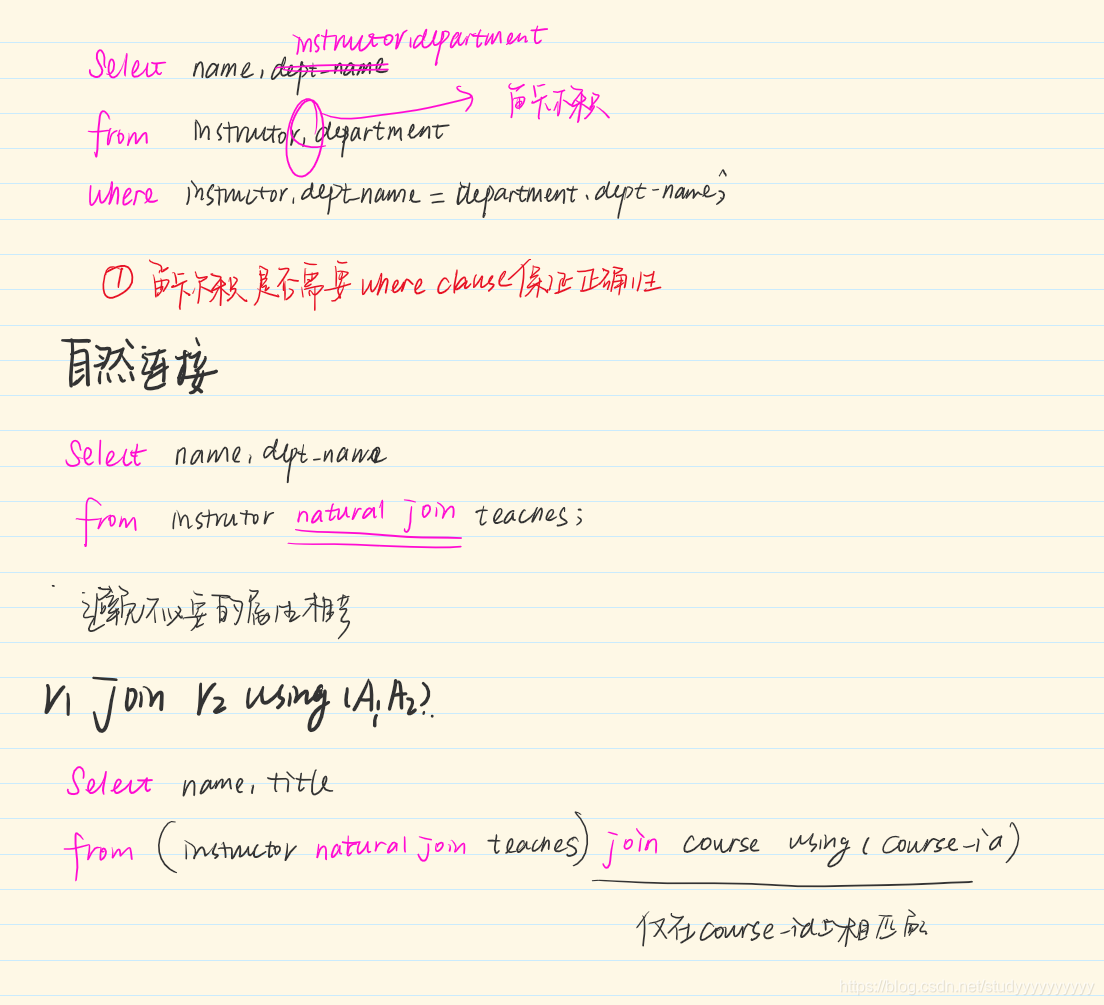 instructor.department
Select name, dept-name
笛卡尔积
from instructor, department
where instructor.dept_name = department.dept-name;
① 笛卡尔积是否需要where clause保证正确性
自然连接
Select name, dept_name
from instrutor natural join teaches;
避免不必要的属性相等
r1 join r2 using (A1, A2)
Select name, title
from (instructor natural join teaches) join course using (course-id)
仅在course-id上相匹配
https://blog.csdn.net/studyyyyyyyyyy